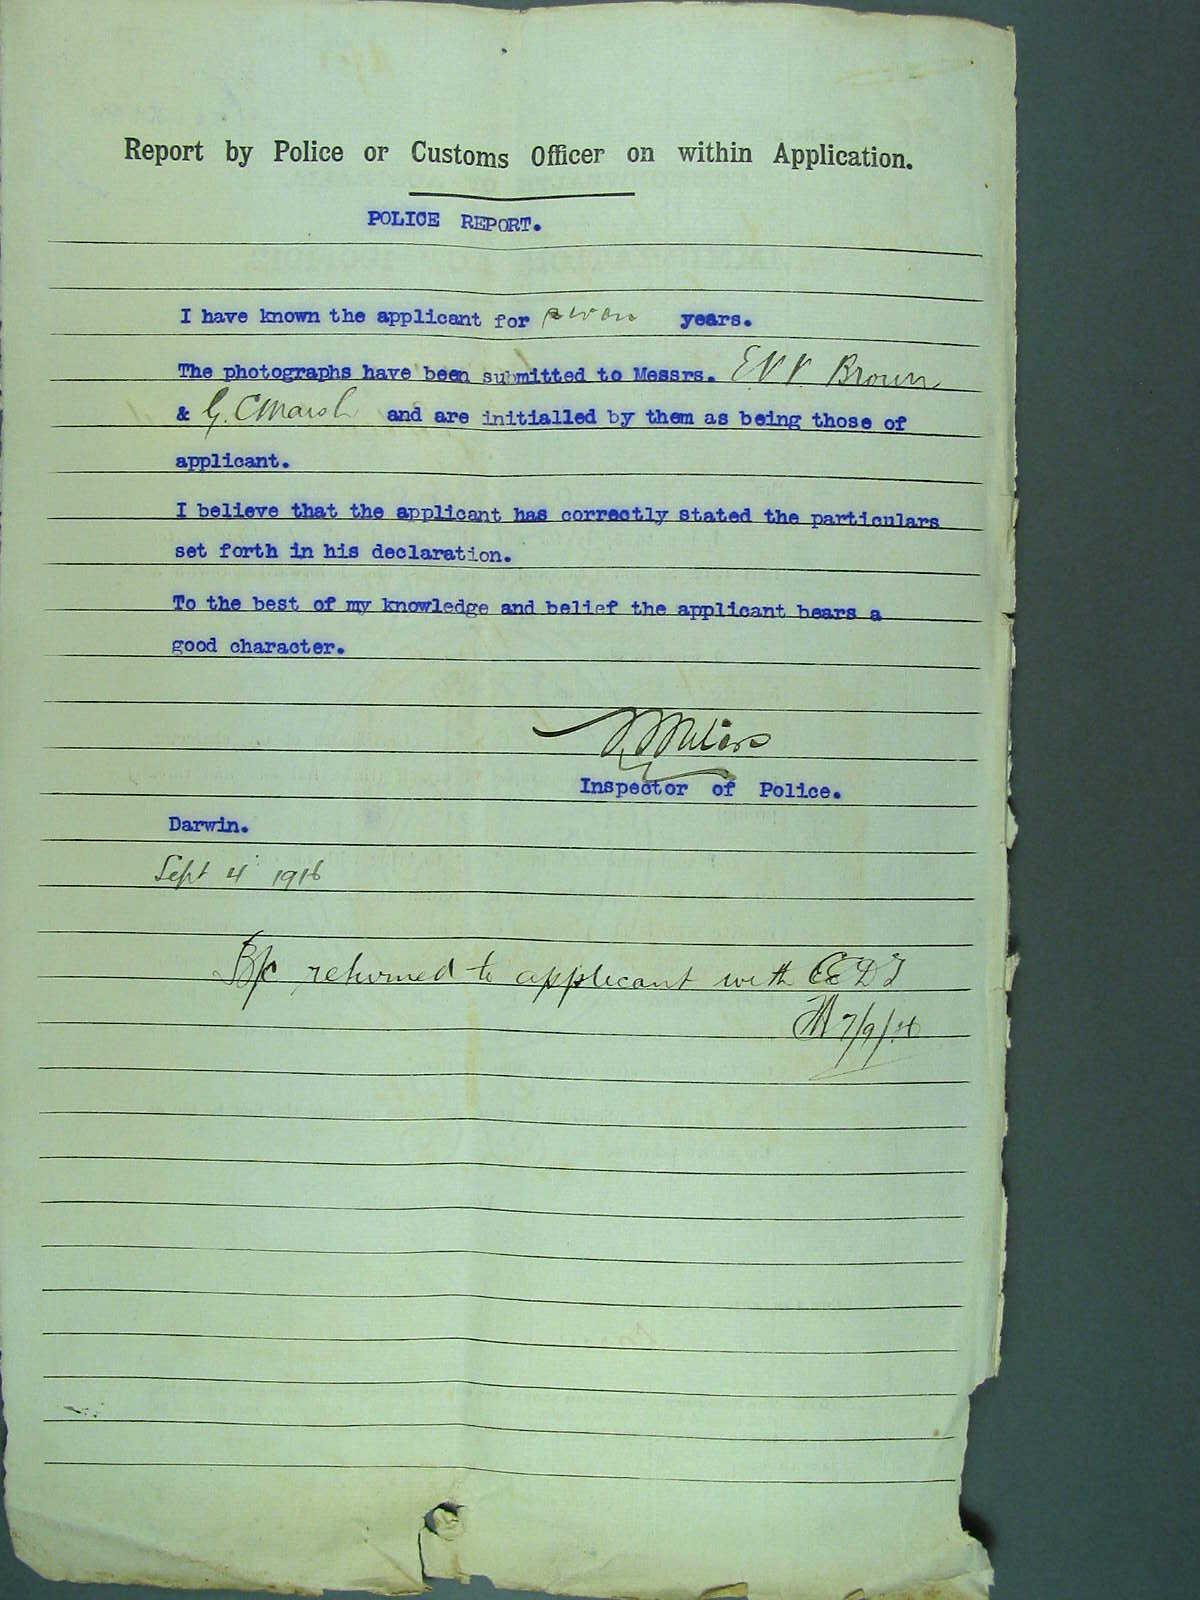 Report by Police or Customs Officer on within Application.
POLICE REPORT.
I have known the applicant for seven years.
The photographs have been submitted to Messrs. E.V.V. Brown
& G. C Marsh and are initialled by them as being those of
applicant.
I believe that the applicant has correctly stated the particulars
set forth in his declaration.
To the best of my knowledge and belief the applicant bears a
good character.
Inspector of Police.
Darwin.
Sept 4 1916
B/c returned to applicant with CEDT
7/9/16